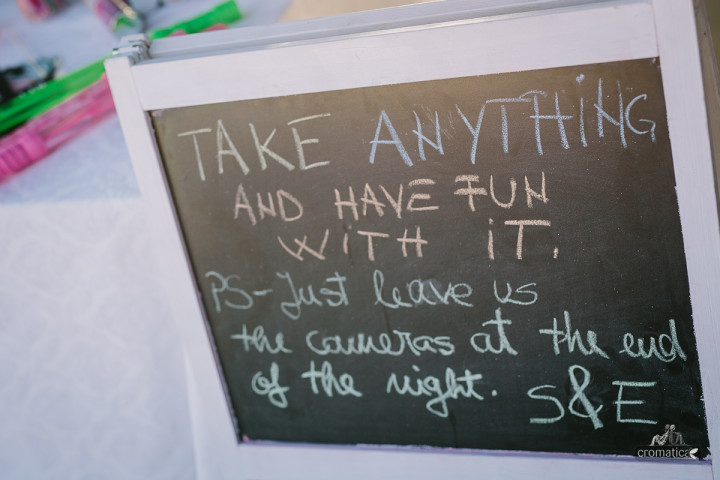 TAKE ANYTHiNG
AND HAVE FUN
WiTH iT.
PS-Just leave us
the cameras at the end
of the night. S&E
cromatica